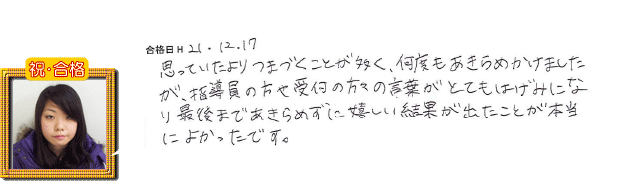 合格日 H 21. 12. 17
祝・合格
思っていたよりつまづくことが多く、何度もあきらめかけました
が、指導員の方や受付の方々の言葉がとてもはげみにな
り最後まであきらめずに嬉しい結果が出たことが本当
によかったです。